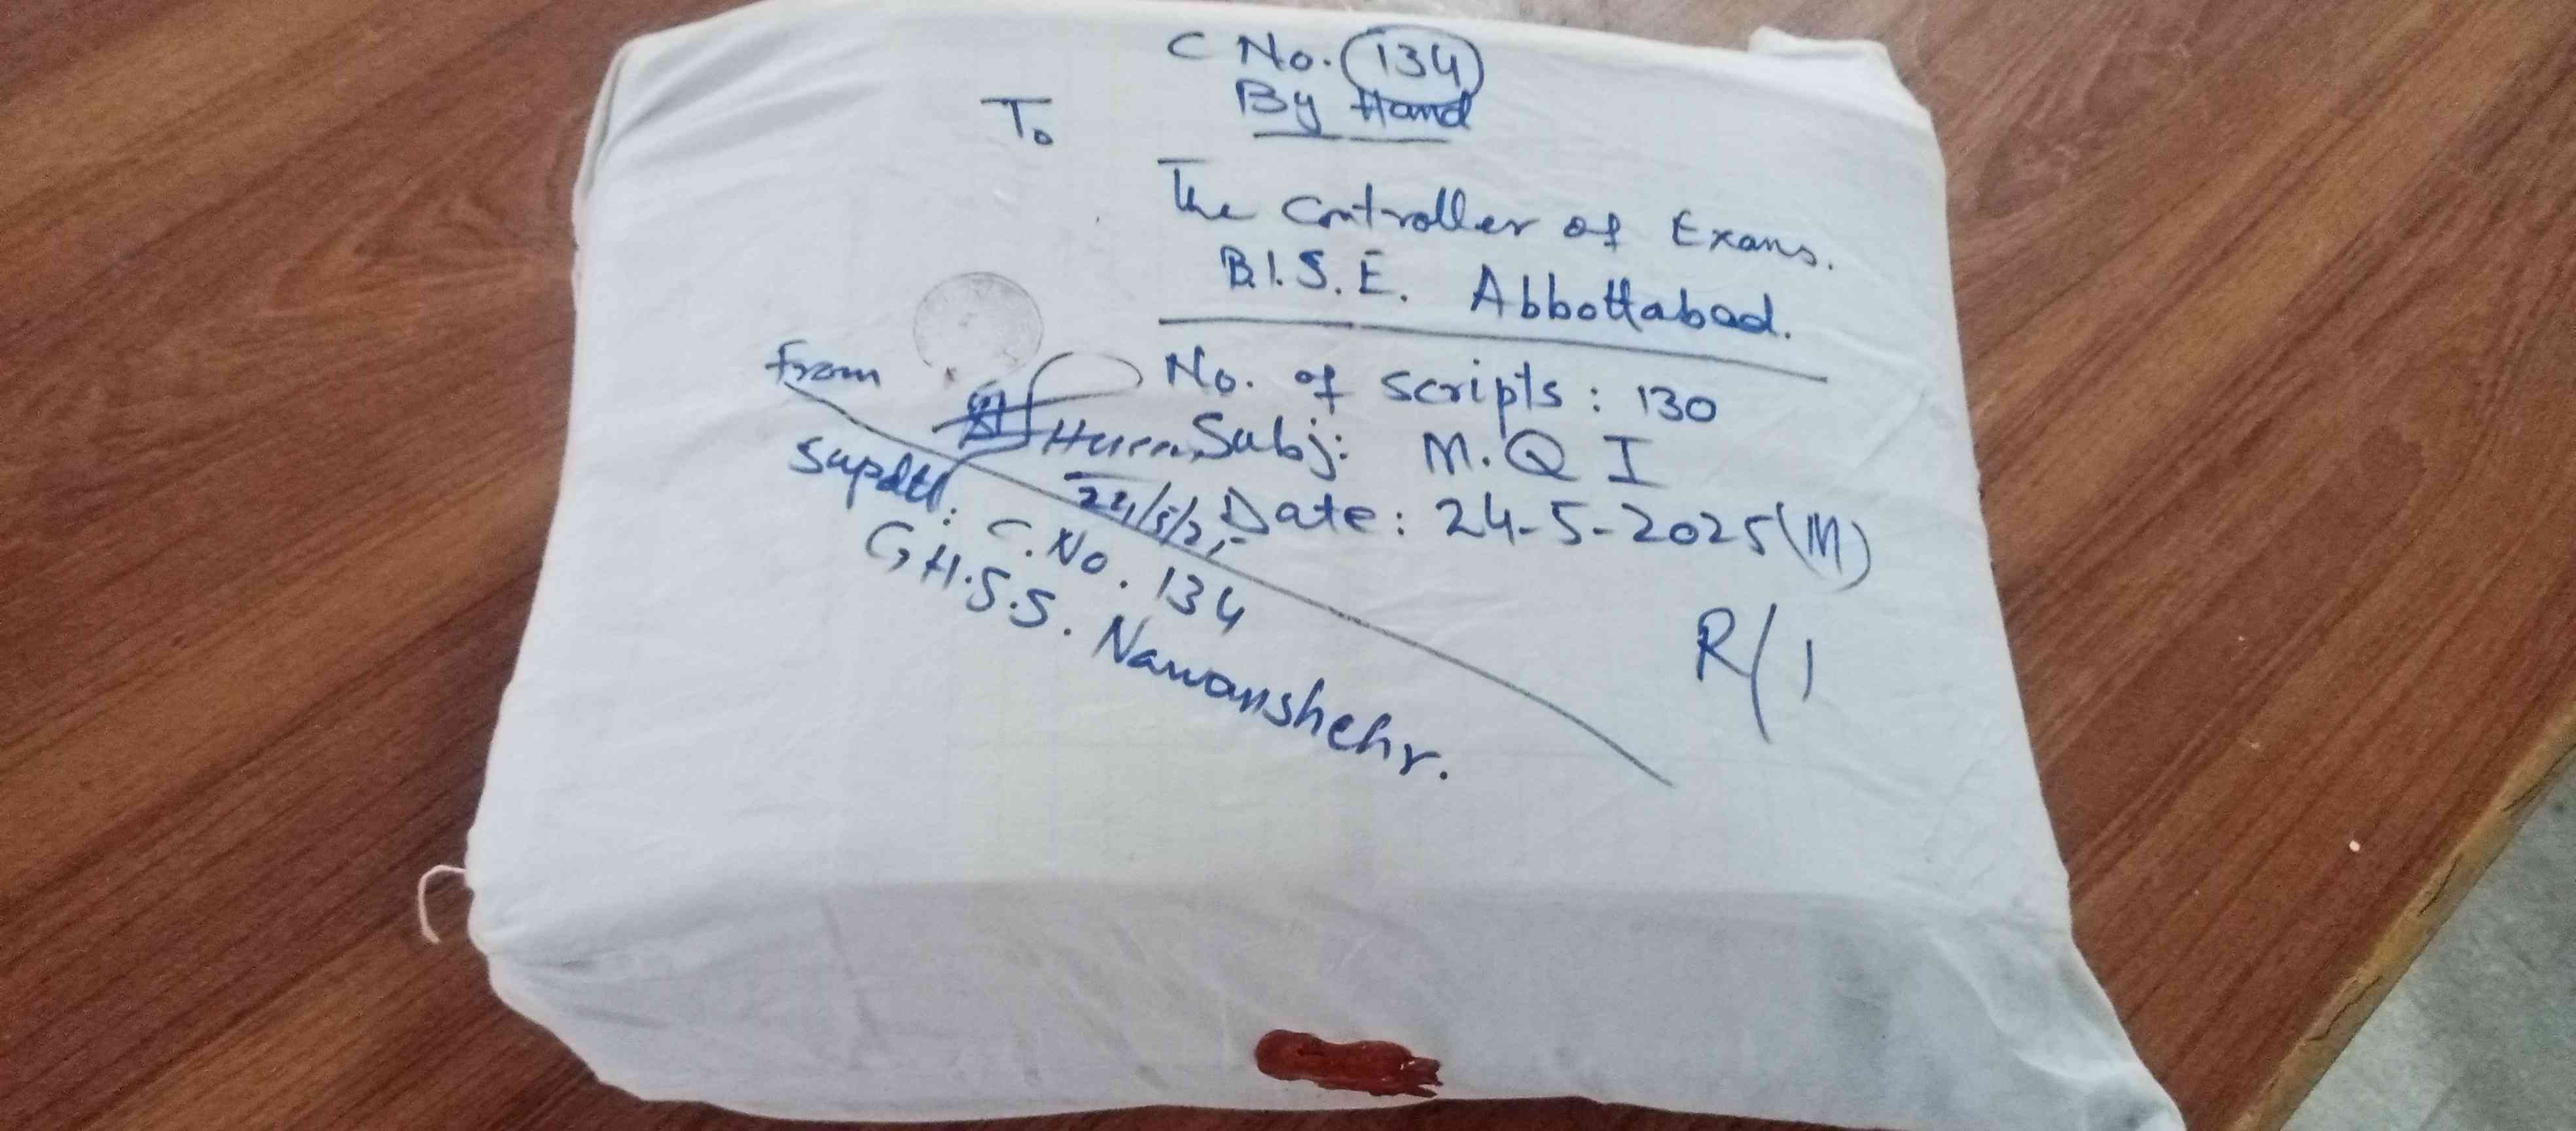 C No. 134
By Hand
To
The Controller of Exams.
B.I.S.E. Abbottabad.
No. of scripts: 130
Subj: M.Q I
Date: 24-5-2025(M)
R/1
From
Supdtt:
C.No. 134
G.H.S.S. Nawanshehr.